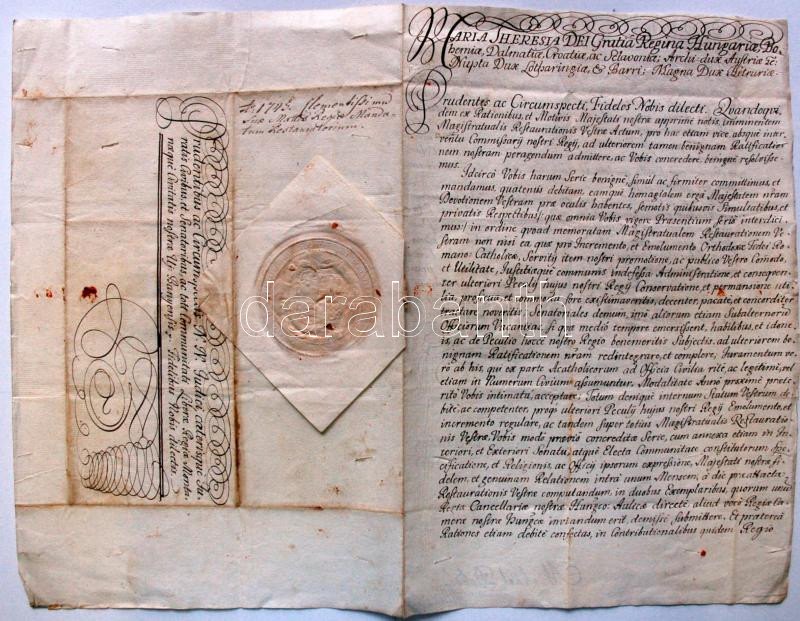 MARIA THERESIA DEI Gratiâ Regina Hungariæ, Bo-
hemiæ, Dalmatiæ, Croatiæ, ac Sclavoniæ, Archi-dux Austriæ &c.
Nupta Dux Lotharingiæ, & Barri; Magna Dux Hetruriæ.
Prudentes ac Circumspecti, Fideles Nobis dilecti. Quandoqui-
dem ex Rationibus, et Motivis Majestati nostræ apprimè notis, imminentem
Magistratualis Restaurationis Vestræ Actum, pro hac etiam vice, absque inter-
ventu Commissarij nostri Regij, ad ulteriorem tamen benignam Ratificatio-
nem nostram peragendum admittere, ac Vobis concedere, benignè resolvisse-
mus.
Idcircò Vobis harum Serie benignè, simul ac firmiter committimus, et
mandamus, quatenus debitam, eamque homagialem ergà Majestatem nrãm
Devotionem Vestram præ oculis habentes, semotis quibusvis Simultatibus, et
privatis Respectibus, quæ omnia Vobis vigore Præsentium seriò interdici-
mus, in ordine quoad memoratam Magistratualem Restaurationem Ve-
stram non nisi ea, quæ pro Incremento, et Emolumento Orthodoxæ Fidei Ro-
mano-Catholicæ, Servitij item nostri promotione, ac publico Vestro Comodo,
et Utilitate, Justitiæque communis indefessa Administratione, et consequen-
ter ulteriori Peculij hujus nostri Regij Conservatione, et permansione uti-
lia, proficua, et commoda fore existimaveritis, decenter, pacatè, et concorditer
tractare noveritis, Senatoriales demum, imò aliorum etiam Subalternorũ
Officiorum Vacantias, si quæ medio tempore emersissent, habilibus, et idone-
is, ac de Peculio hocce nostro Regio benemeritis Subjectis, ad ulteriorem be-
nignam Ratificationem nrãm redintegrare, et complere, Juramentum ve-
rò ab his, qui ex parte Acatholicorum ad Officia Civilia ritè, ac legitimè, vel
etiam in Numerum Civium assumuntur, Modalitate Anno proximè præte-
rito Vobis intimata, acceptare; Totum denique internum Statum Vestrum de-
bitè, ac competenter, proque ulteriori Peculij hujus nostri Regij Emolumento, et
incremento regulare, ac tandem super totius Magistratualis Restauratio-
nis Vestræ, Vobis modo prævio concreditæ Serie, cum annexa etiam in In-
teriori, et Exteriori Senatu, atque Electa Communitate constitutorum Spe-
cificatione, et Religionis, ac Officij ipsorum expressione, Majestati nostræ fi-
delem, et genuinam Relationem intrà unum Mensem, à die peractæ
Restaurationis Vestræ computandum, in duobus Exemplaribus, quorum unũ
Rectà Cancellariæ nostræ Hungco-Aulicæ directè, aliud verò Regiæ Ca-
meræ nostræ Hungcæ inviandum erit, demissè submittere. Et prætereà
Rationes etiam debitè confectas, in Contributionalibus quidem Regio
Ao 1745. Clementissimum
Suæ Mattis Regiæ Manda-
tum Restauratorium.
Prudentibus ac Circumspectis N. N. Judici, cæterisque Ju-
ratis Civibus, et Senatoribus, ac toti Communitati Liberæ Regiæ Monta-
næque Civitatis nostræ Uj-Bányensis. Fidelibus Nobis dilectis.
darabanth